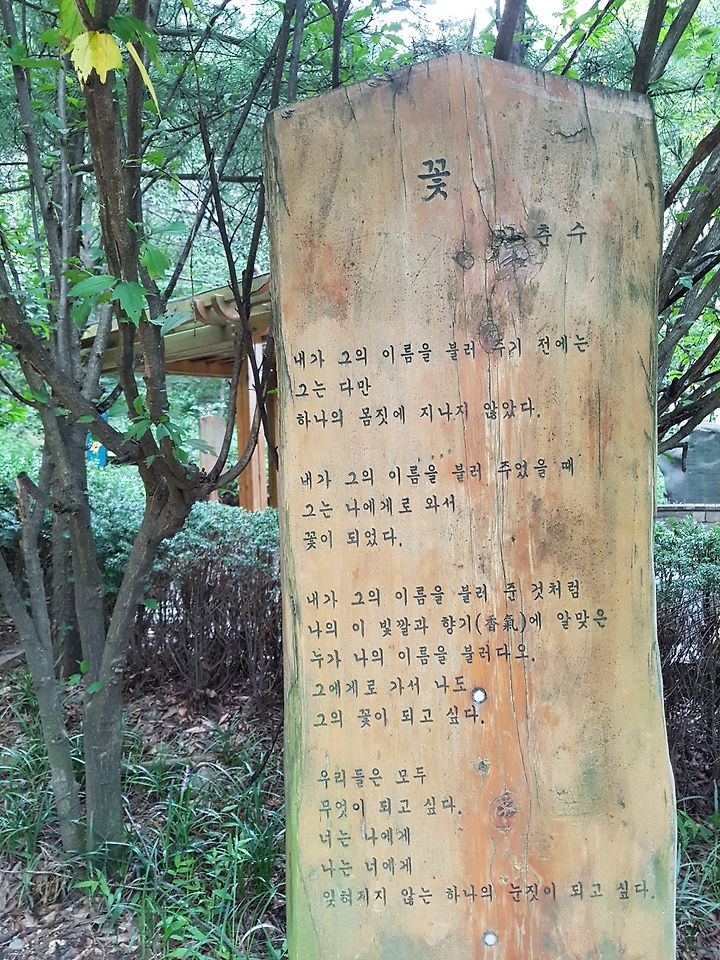 꽃
김춘수
내가 그의 이름을 불러 주기 전에는
그는 다만
하나의 몸짓에 지나지 않았다.
내가 그의 이름을 불러 주었을 때
그는 나에게로 와서
꽃이 되었다.
내가 그의 이름을 불러 준 것처럼
나의 이 빛깔과 향기(香氣)에 알맞은
누가 나의 이름을 불러다오.
그에게로 가서 나도
그의 꽃이 되고 싶다.
우리들은 모두
무엇이 되고 싶다.
너는 나에게
나는 너에게
잊혀지지 않는 하나의 눈짓이 되고 싶다.